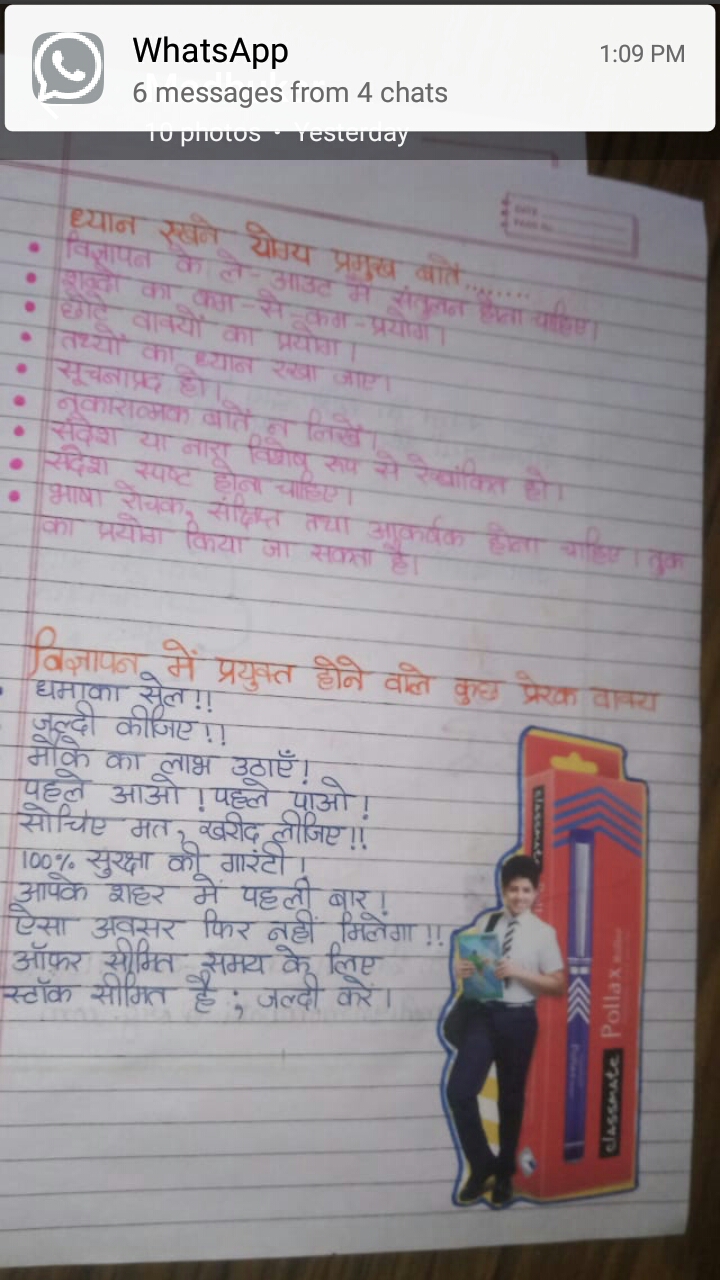 WhatsApp
1:09 PM
6 messages from 4 chats
10 photos • Yesterday
ध्यान रखने योग्य प्रमुख बातें........
• विज्ञापन के ले-आउट में संतुलन होना चाहिए।
• शब्दों का कम-से-कम-प्रयोग।
• छोटे वाक्यों का प्रयोग।
• तथ्यों का ध्यान रखा जाए।
• सूचनाप्रद हो।
• नकारात्मक बातें न लिखें।
• संदेश या नारा विशेष रूप से रेखांकित हो।
• संदेश स्पष्ट होना चाहिए।
• भाषा रोचक, संक्षिप्त तथा आकर्षक होना चाहिए। तुक
का प्रयोग किया जा सकता है।
विज्ञापन में प्रयुक्त होने वाले कुछ प्रेरक वाक्य
• धमाका सेल!!
जल्दी कीजिए!!
मौके का लाभ उठाएँ!
पहले आओ! पहले पाओ!
सोचिए मत, खरीद लीजिए!!
100% सुरक्षा की गारंटी!
आपके शहर में पहली बार!
ऐसा अवसर फिर नहीं मिलेगा!!
ऑफर सीमित समय के लिए
स्टॉक सीमित है; जल्दी करें।
classmate Pollax